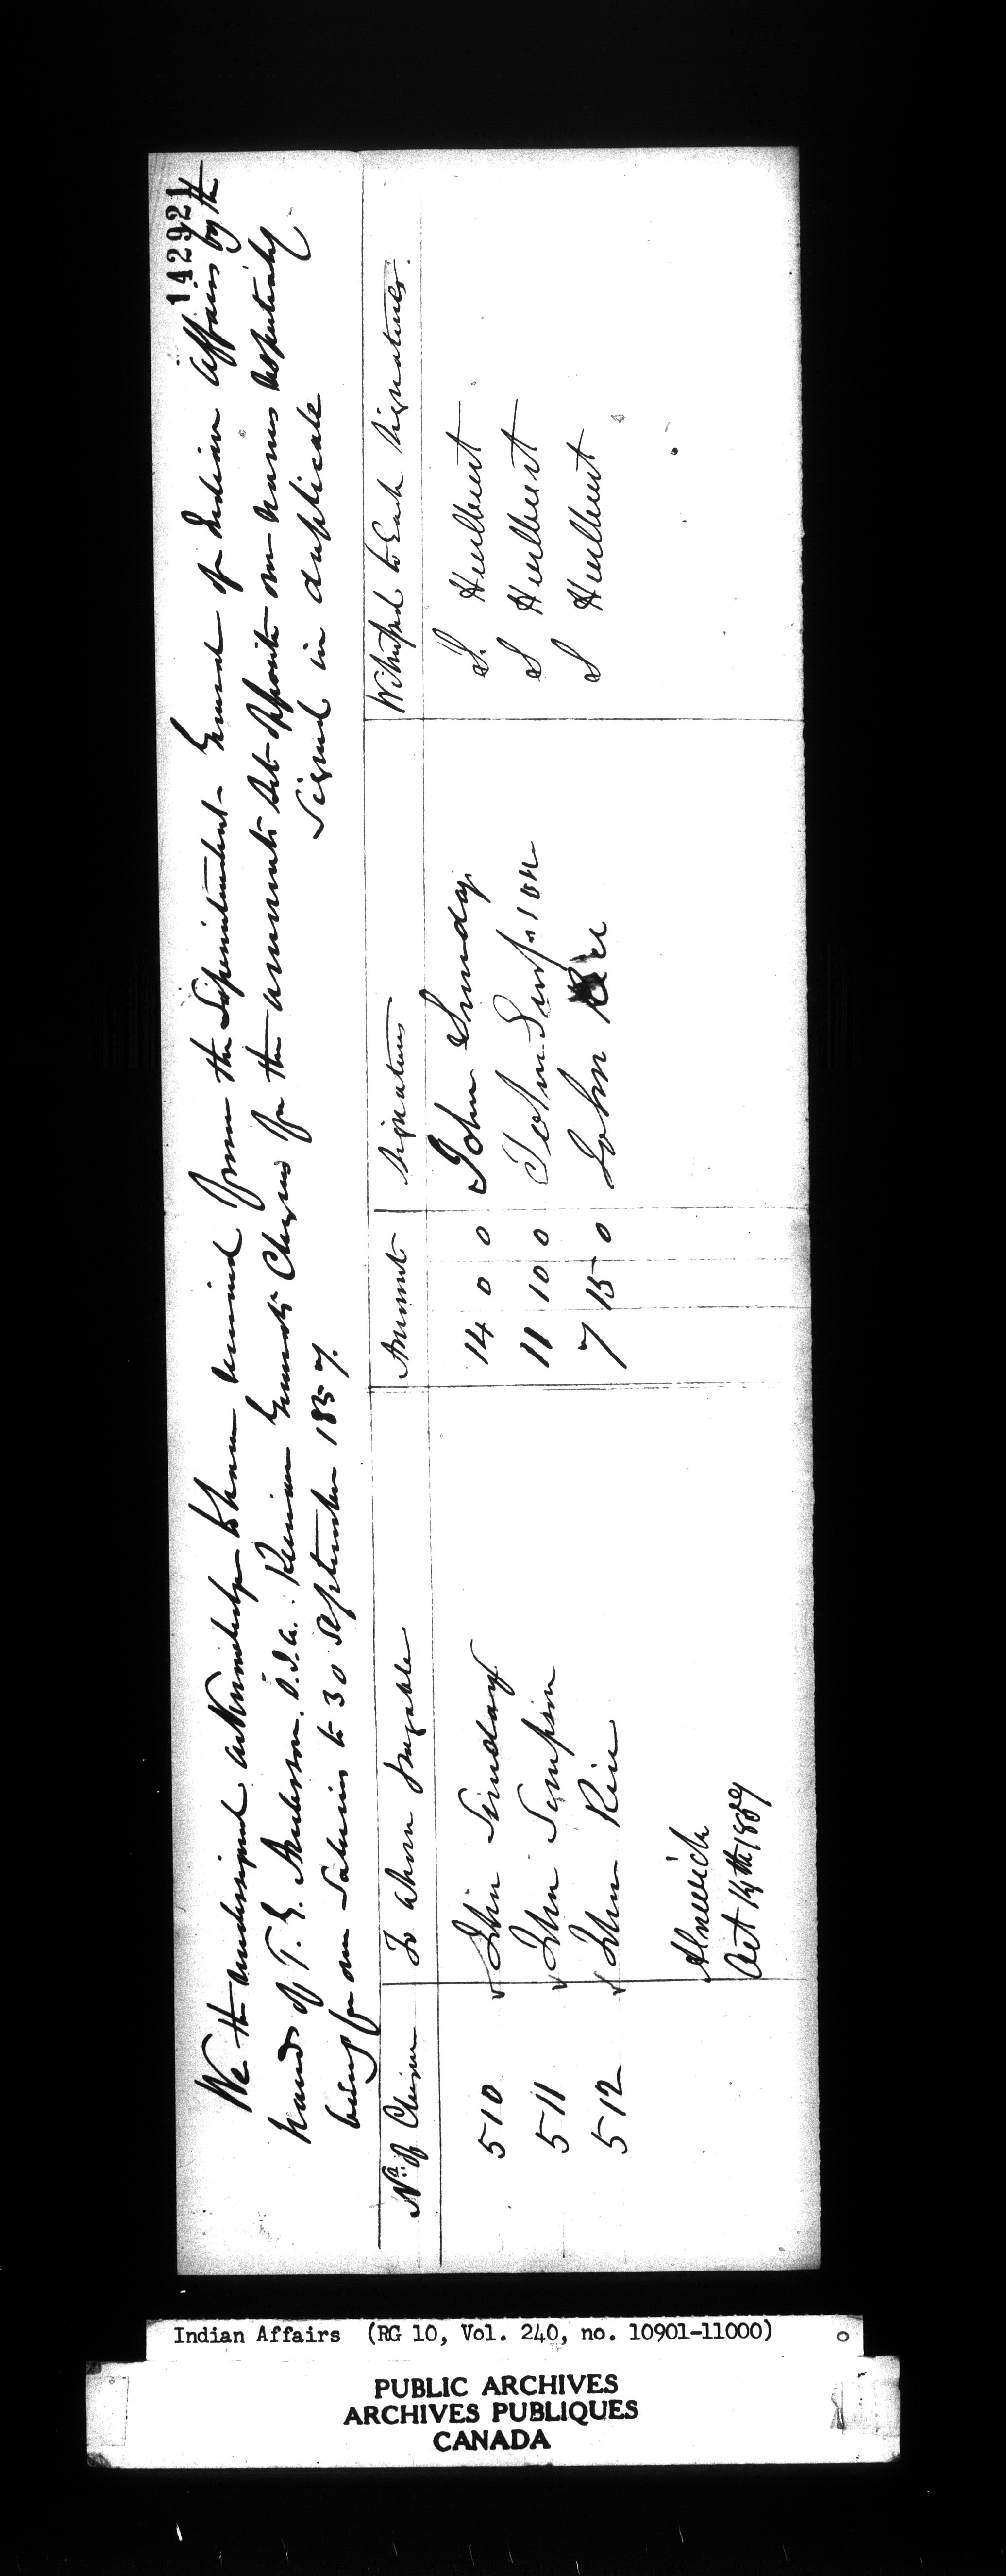 142921
We the undersigned acknowledge to have received from the Superintendent General of Indian Affairs by the
hands of T. G. Anderson. S.I.A. Receiver General's Cheques for the amounts set opposite our names respectively
being for our Salaries to 30 September 1857.
Signed in duplicate
No. of Cheque To whom payable Amount Signatures Witnessed to Each Signatures.
510 John Sunday 14 0 0 John Sunday S. Hurlburt
511 John Simpson 11 10 0 John Simpson S Hurlburt
512 John Rice 7 15 0 John Rice S Hurlburt
Alnwick
Oct 14th, 1857
Indian Affairs (RG 10, Vol. 240, no. 10901-11000)
PUBLIC ARCHIVES
ARCHIVES PUBLIQUES
CANADA